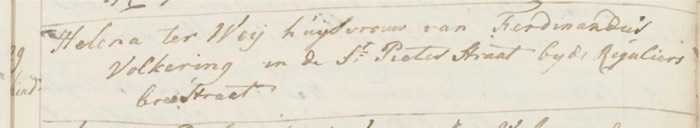 Helena ter Weij huijsvrouw van Ferdinandus
Volkering in de St. Pieter Straat by de Reguliers
bree Straat